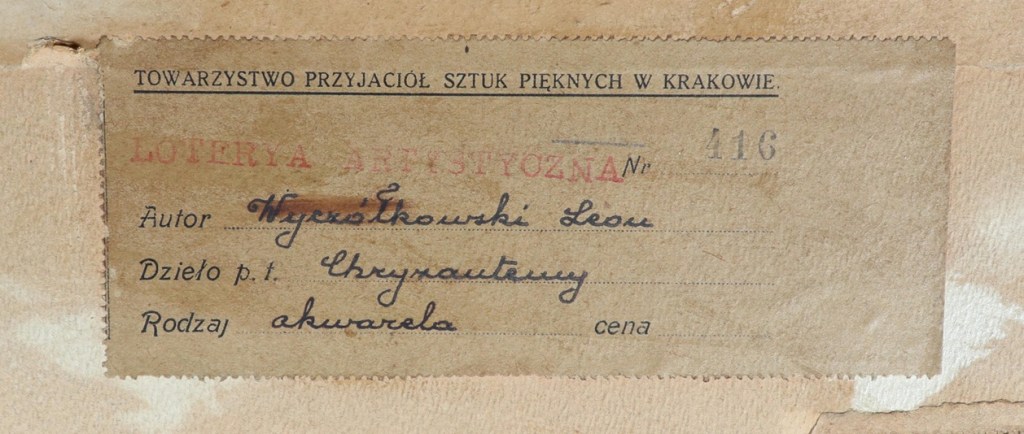 TOWARZYSTWO PRZYJACIÓŁ SZTUK PIĘKNYCH W KRAKOWIE.
LOTERYA ARTYSTYCZNA Nr 416
Autor Wyczółkowski Leon
Dzieło p. t. Chryzantemy
Rodzaj akwarela cena